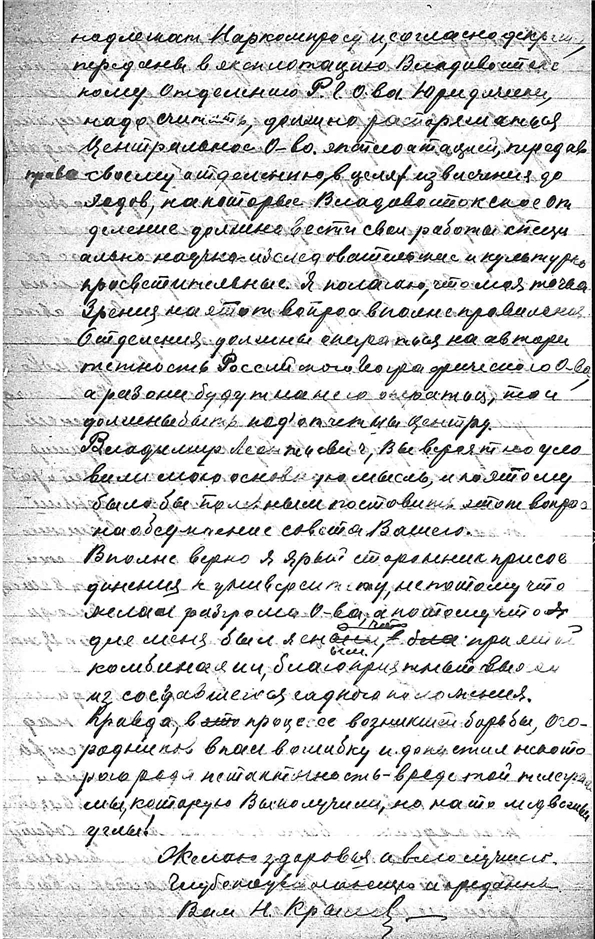 надлежат Наркомпросу и, согласно декрета,
переданы в эксплотацию Владивостокс
кому Отделению Р.Г.О-ва. Юридически,
надо считать, должно распоряжаться
Центральное О-во эксплоатацией, передав
права своему отделению, в целях извлечения до
ходов, на которые Владивостокское От
деление должно вести свои работы специ
ально научно-исследовательские и культурно
просветительные. Я полагаю, что моя точка
зрения на этот вопрос вполне правильная
Отделения должны опираться на автори
тетность Российского Географического О-ва,
а раз они будут на него опираться, то и
должны быть под'отчетны Центру
Владимир Леонтьевич, Вы вероятно уло
вили мою основную мысль, и поэтому
было бы полезным поставить этот вопрос
на обсуждение совета Вашего.
Вполне верно я ярый сторонник присое
динения к университету, не потому что
желал разгрома О-ва, а потому что
для меня был ясный, при этой
комбинации, благоприятный выход
из создавшегося гадкого положения.
Правда, в процессе возникшей борьбы, Ого
родников впал в ошибку и допустил некото
рого рода нетактичность - вроде той телеграм
мы, которую Вы получили, но на то и медвежьи
углы!
Желаю здоровья и благополучия.
Глубоко уважающий и преданный
Вам Н. Крылов